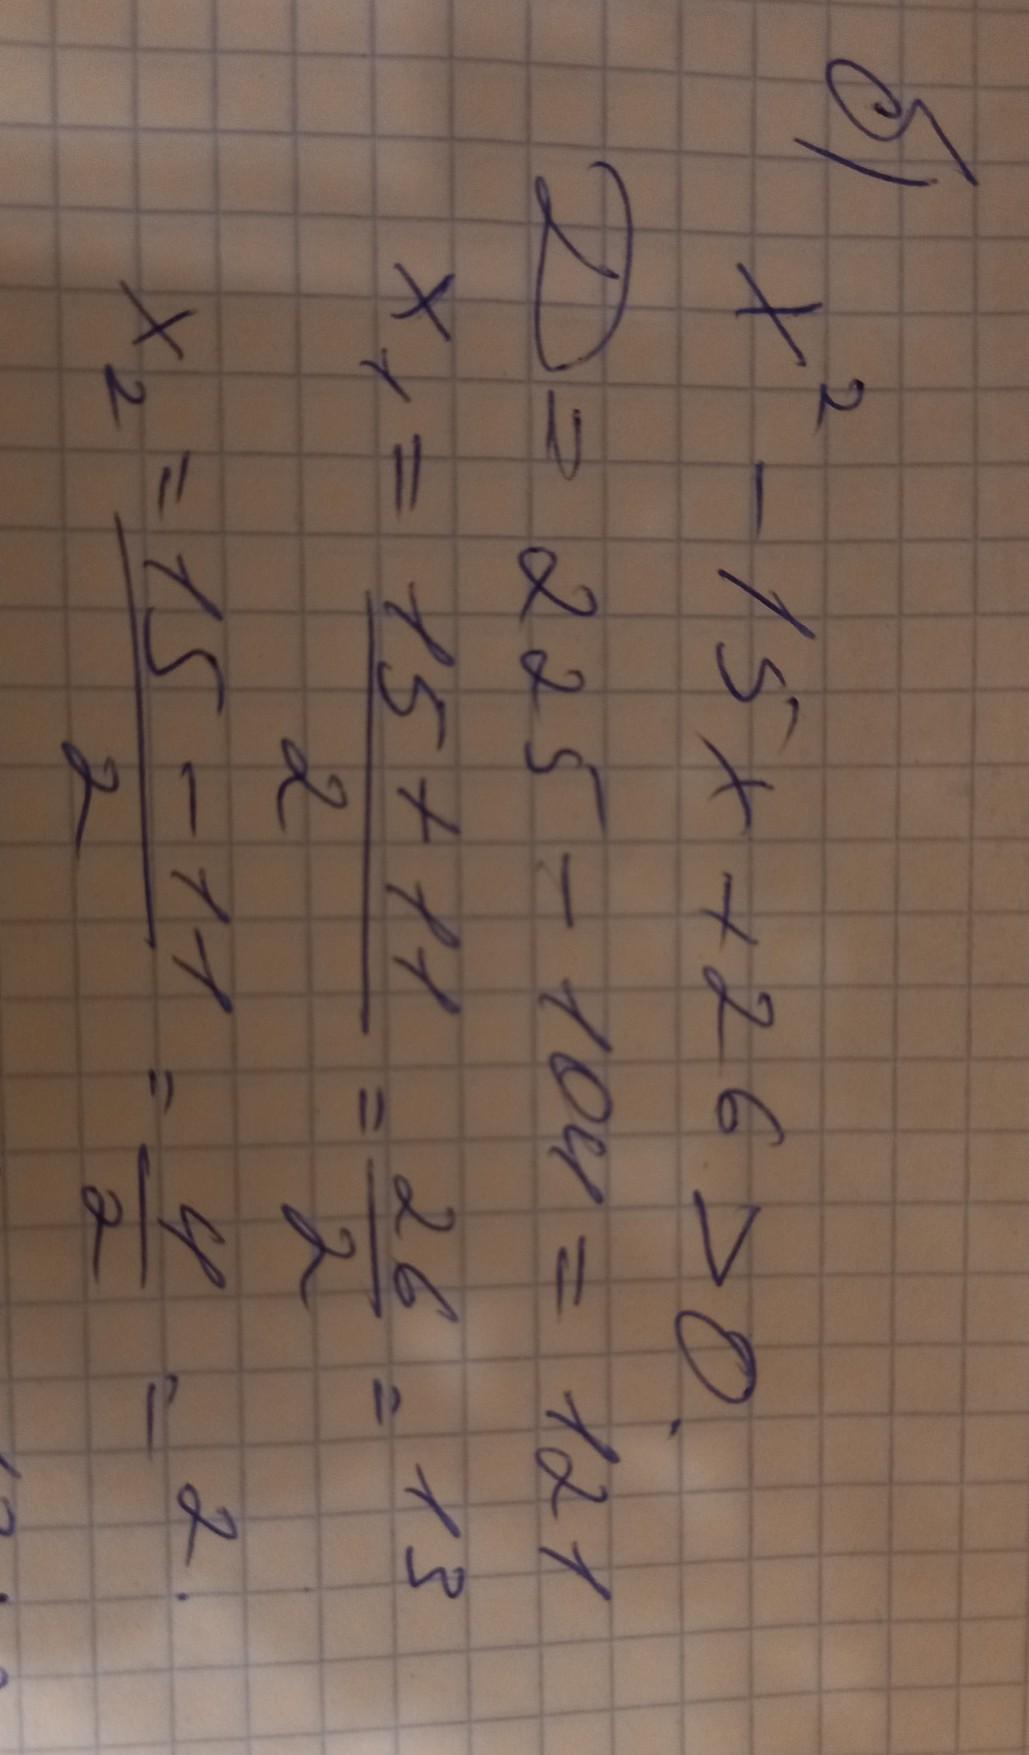 б) x² - 15x + 26 > 0.
D = 225 - 104 = 121
x₁ = (15 + 11)/2 = 26/2 = 13
x₂ = (15 - 11)/2 = 4/2 = 2.